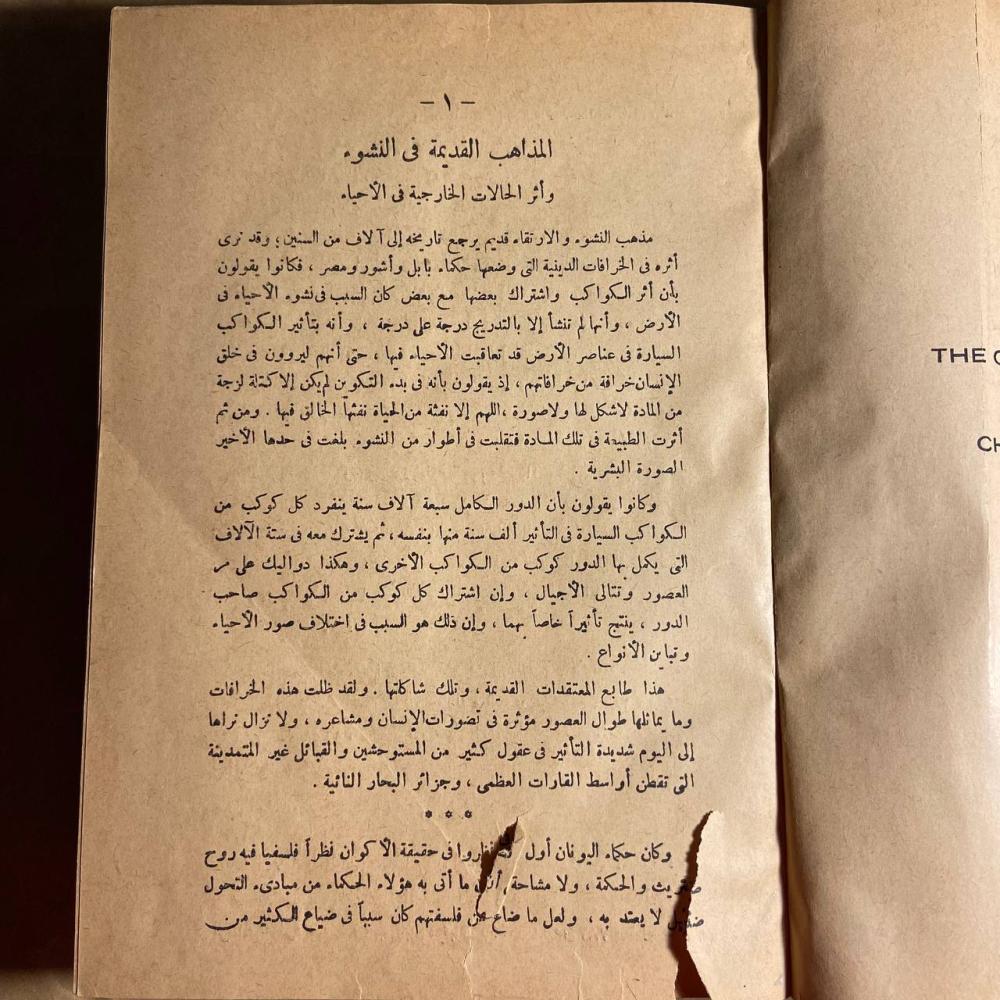 — ١ —
المذاهب القديمة فى النشوء
وأثر الحالات الخارجية فى الأحياء
مذهب النشوء والارتقاء قديم يرجع تاريخه إلى آلاف من السنين؛ وقد ترى
أثره فى الخرافات الدينية التى وضعها حكماء بابل وأشور ومصر ، فكانوا يقولون
بأن أثر الكواكب واشتراك بعضها مع بعض كان السبب فى نشوء الأحياء فى
الأرض ، وأنها لم تنشأ إلا بالتدريج درجة على درجة ، وأنه بتأثير الكواكب
السيارة فى عناصر الأرض قد تعاقبت الأحياء فيها ، حتى أنهم ليروون فى خلق
الإنسان خرافة من خرافاتهم ، إذ يقولون بأنه فى بدء التكوين لم يكن إلا كتلة لزجة
من المادة لاشكل لها ولاصورة ، اللهم إلا نفثة من الحياة نفثها الخالق فيها . ومن ثم
أثرت الطبيعة فى تلك المادة فتقلبت فى أطوار من النشوء بلغت فى حدها الأخير
الصورة البشرية .
وكانوا يقولون بأن الدور الكامل سبعة آلاف سنة ينفرد كل كوكب من
الكواكب السيارة فى التأثير ألف سنة منها بنفسه ، ثم يشترك معه فى ستة الآلاف
التى يكمل بها الدور كوكب من الكواكب الأخرى ، وهكذا دواليك على مر
العصور وتتالى الأجيال ، وإن اشتراك كل كوكب من الكواكب صاحب
الدور ، ينتج تأثيراً خاصاً بهما ، وإن ذلك هو السبب فى اختلاف صور الأحياء
وتباين الأنواع .
هذا طابع المعتقدات القديمة ، وتلك شاكلتها . ولقد ظلت هذه الخرافات
وما يماثلها طوال العصور مؤثرة فى تصورات الإنسان ومشاعره ، ولا تزال تراها
إلى اليوم شديدة التأثير فى عقول كثير من المستوحشين والقبائل غير المتمدينة
التى تقطن أواسط القارات العظمى ، وجزائر البحار النائية .
* * *
وكان حكماء اليونان أول نظروا فى حقيقة الأكوان نظراً فلسفيا فيه روح
والحكمة ، ولا مشاحة أن ما أتى به هؤلاء الحكماء من مبادىء التحول
ضئيل لا يعتد به ، ولعل ما ضاع من فلسفتهم كان سبباً فى ضياع الكثير من
THE
CH